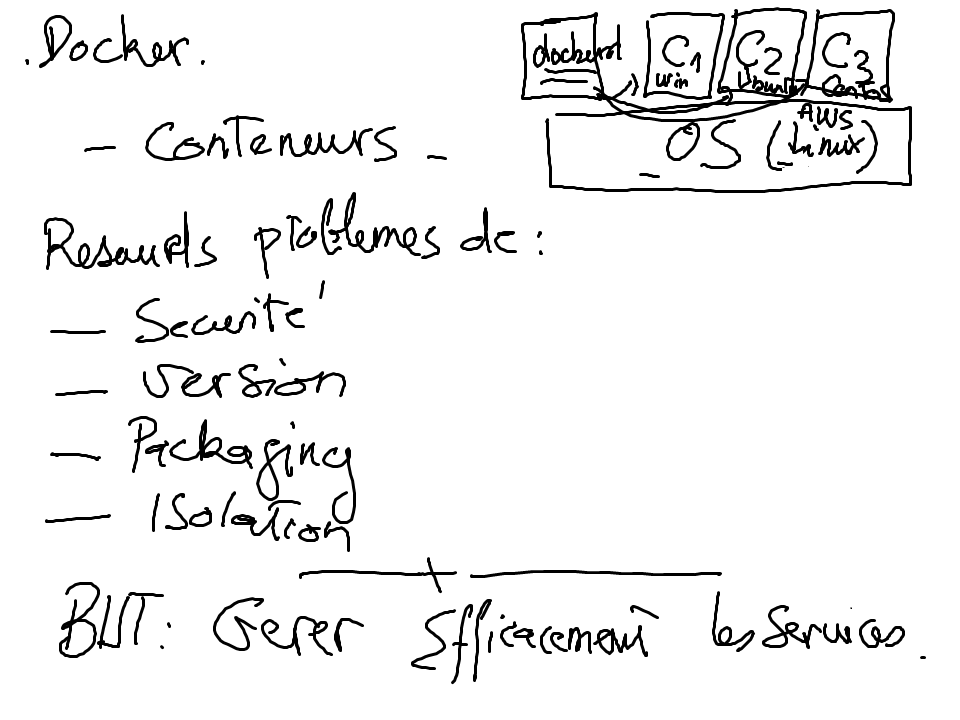 . Docker.
dockerd
C1
win
C2
Ubuntu
C3
Centos
AWS
OS (Linux)
- Conteneurs -
problemes de :
- Securité
- version
- Packaging
- Isolation
BUT: Gerer Efficacement les Services.